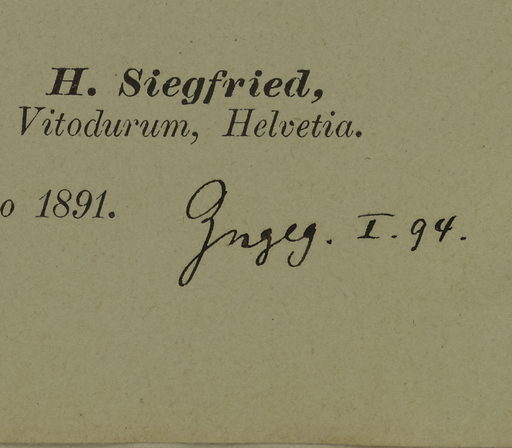 H. Siegfried,
Vitodurum, Helvetia.
o 1891. Ingeg. I. 94.